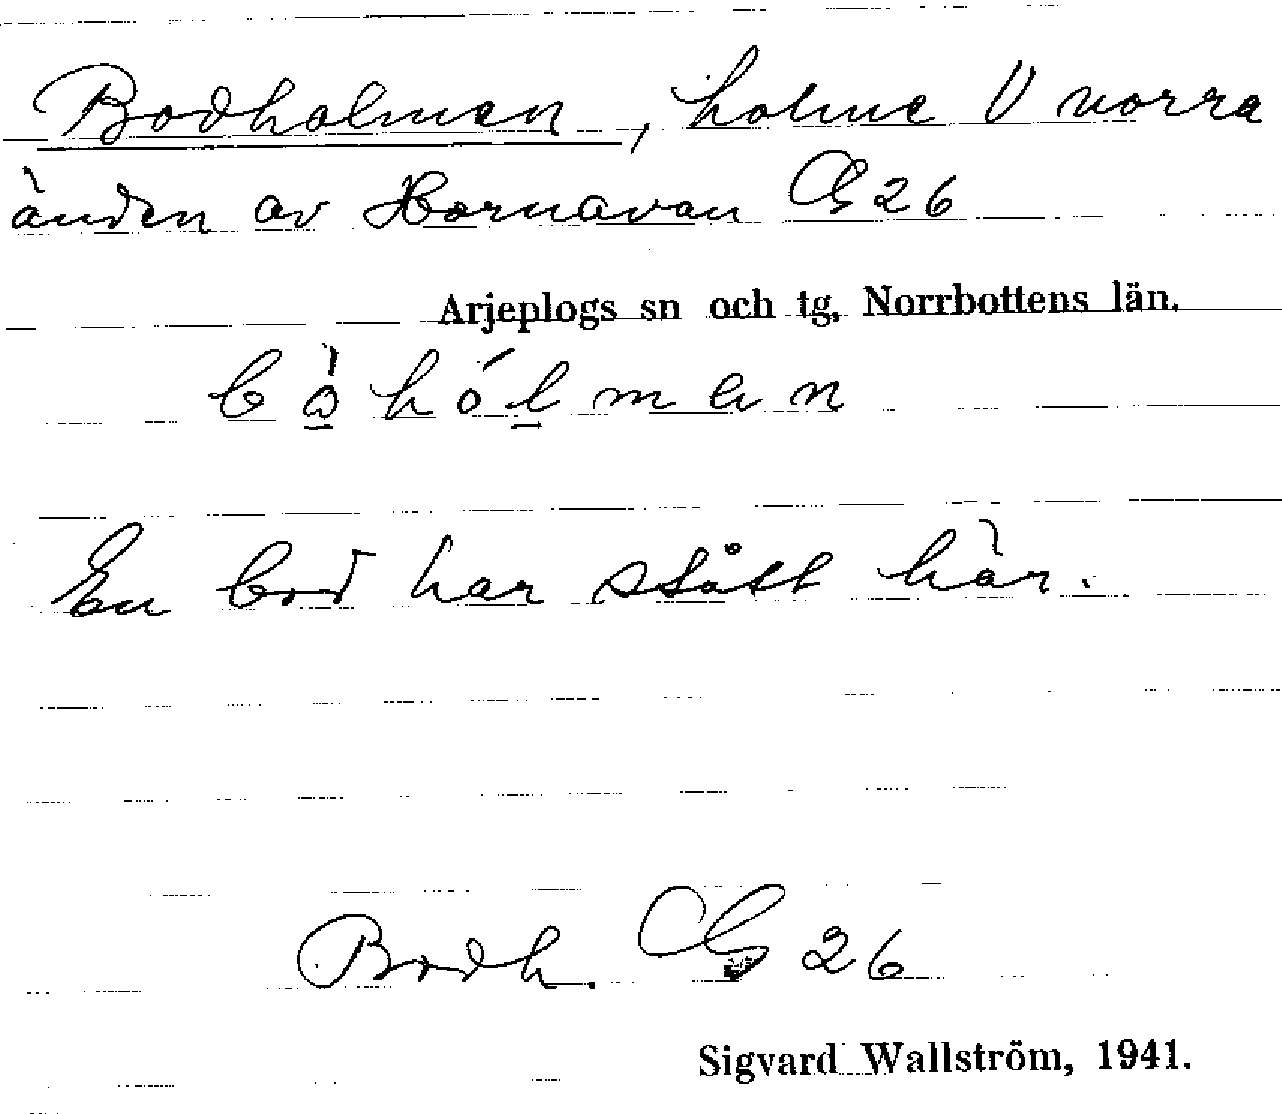 Bodholmen, holme V norra
änden av Hornavan Gs 26
Arjeplogs sn och tg, Norrbottens län.
En bod har stått här.
Bodh. Gs 26
Sigvard Wallström, 1941.